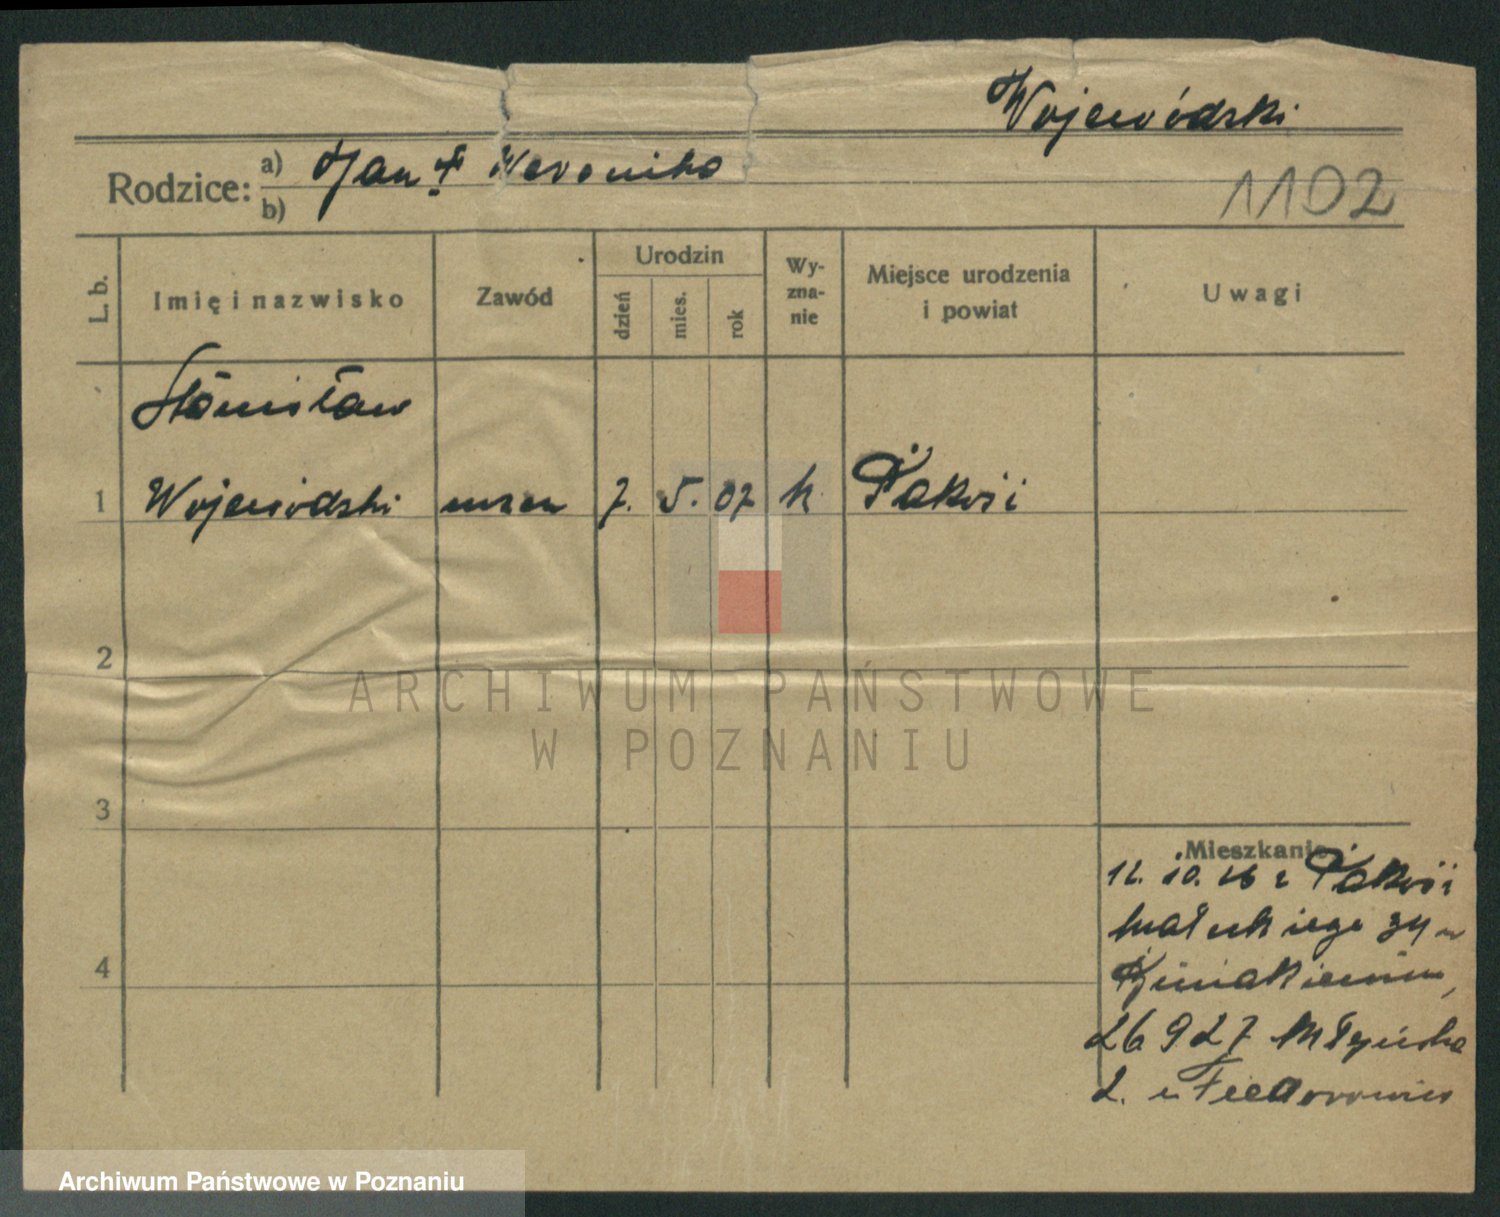 Wojewódzki
Rodzice: a) Jan i Weronika
b)
1102
L. b. Imię i nazwisko Zawód Urodzin dzień mies. rok Wy-zna-nie Miejsce urodzenia i powiat Uwagi
Stanisław
1 Wojewódzki uczeń 7. 5. 07 k Pakość
2
ARCHIWUM PAŃSTWOWE
W POZNANIU
3
Mieszkanie
10. 26 z Pakość
34
4
26 9 27 Młyńska
2. u Fiedorowicz
Archiwum Państwowe w Poznaniu